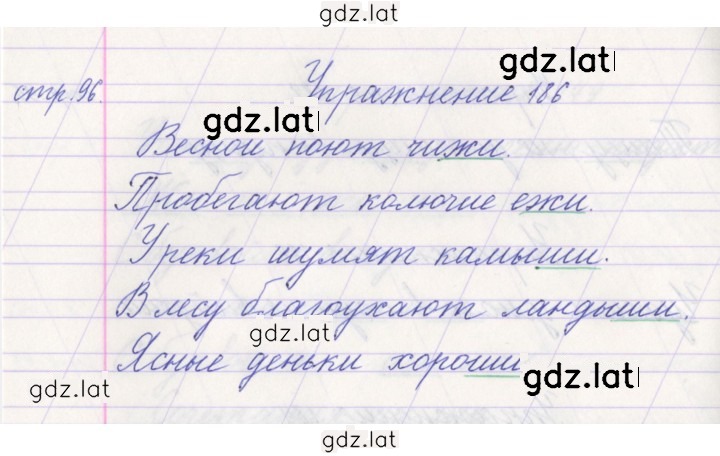 gdz.lat
gdz.lat
стр. 96. Упражнение 186
gdz.lat
Весной поют чижи.
Пробегают колючие ежи.
У реки шумят камыши.
В лесу благоухают ландыши.
gdz.lat
Ясные деньки хороши
gdz.lat
gdz.lat
gdz.lat